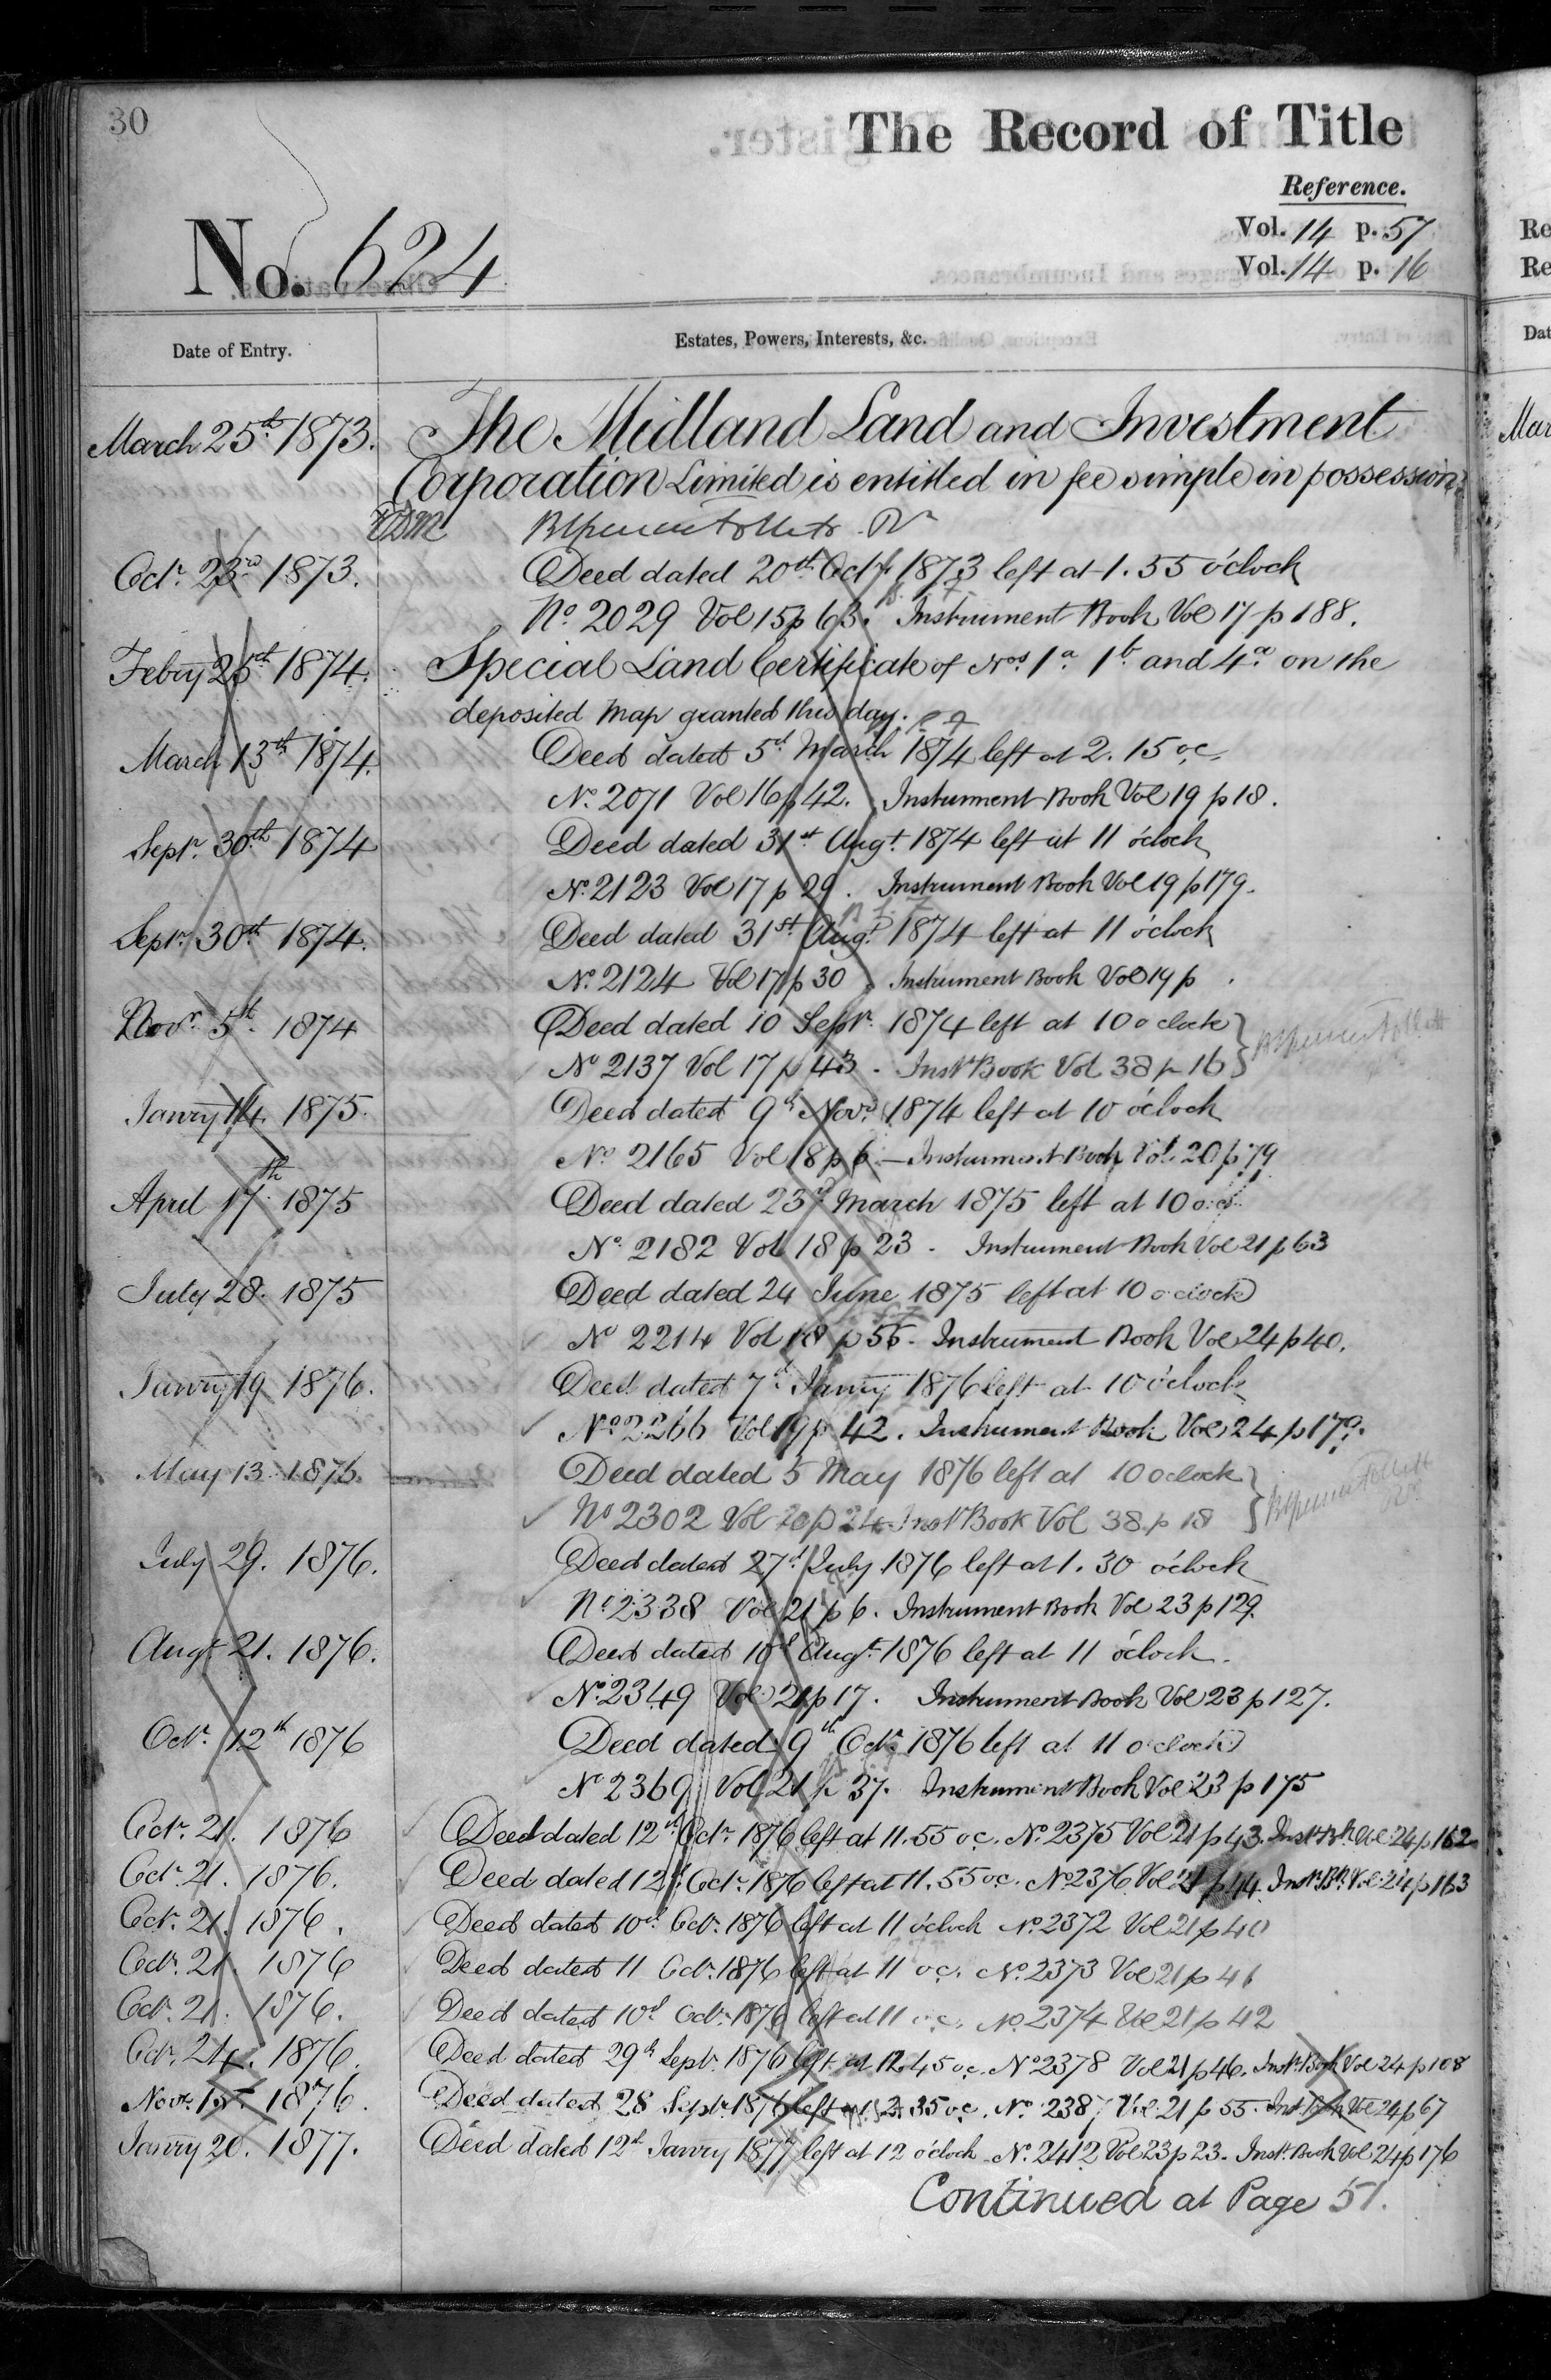 30
The Record of Title
Reference.
Vol. 14 p. 57
Vol. 14 p. 16
No. 624
Date of Entry.
Estates, Powers, Interests, &c.
March 25th 1873. The Midland Land and Investment
Corporation Limited is entitled in fee simple in possession.
Octr. 23rd 1873. Deed dated 20th Octr. 1873 left at 1.55 o'clock
No. 2029 Vol 15 p 63. Instrument Book Vol 17 p 188.
Febry 25th 1874. Special Land Certificate of Nos. 1a 1b and 4a on the
deposited Map granted this day.
March 13th 1874. Deed dated 5d March 1874 left at 2.15 oc.
No. 2071 Vol 16 p 42. Instrument Book Vol 19 p 18.
Septr. 30th 1874 Deed dated 31st Augt. 1874 left at 11 o'clock
No. 2123 Vol 17 p 29. Instrument Book Vol 19 p 179.
Septr. 30th 1874. Deed dated 31st Augt. 1874 left at 11 o'clock
No. 2124 Vol 17 p 30 Instrument Book Vol 19 p .
Novr. 5th 1874 Deed dated 10 Septr. 1874 left at 10 o clock
No 2137 Vol 17 p 43. Instt Book Vol 38 p 16
Janry 14. 1875. Deed dated 9th Novr. 1874 left at 10 o'clock
No 2165 Vol 18 p 6 – Instrument Book Vol. 20 p 79
April 17th 1875 Deed dated 23d March 1875 left at 10 o.c.
No. 2182 Vol 18 p 23 . Instrument Book Vol 21 p 63
July 28. 1875 Deed dated 24 June 1875 left at 10 o clock
No 2214 Vol 18 p 55. Instrument Book Vol 24 p 40.
Janry 19 1876. Deed dated 7d Janry 1876 left at 10 o'clock
No 2266 Vol 19 p 42. Instrument Book Vol 24 p 179.
May 13. 1876. Deed dated 5 May 1876 left at 10 oclock
No 2302 Vol 20 p 24. Instt Book Vol 38 p 18
July 29. 1876. Deed dated 27d July 1876 left at 1.30 o'clock
No 2338 Vol 21 p 6. Instrument Book Vol 23 p 129.
Augt 21. 1876. Deed dated 10d Augt. 1876 left at 11 o'clock.
No. 2349 Vol 21 p 17. Instrument Book Vol 23 p 127.
Octr. 12th 1876 Deed dated 9th Octr. 1876 left at 11 o'clock
No 2369 Vol 21 p 37. Instrument Book Vol 23 p 175
Octr. 21. 1876 Deed dated 12th Octr. 1876 left at 11.55 oc. No. 2375 Vol 21 p 43. Inst. Bk. Vol 24 p 162
Octr. 21. 1876. Deed dated 12th Octr. 1876 left at 11.55 oc. No 2376 Vol 21 p 44. Inst. Bk. Vol. 24 p 163
Octr. 21. 1876. Deed dated 10d Octr. 1876 left at 11 o'clock No. 2372 Vol 21 p 40
Octr. 21. 1876 Deed dated 11 Octr. 1876 left at 11 oc. No. 2373 Vol 21 p 41
Octr. 21. 1876. Deed dated 10d Octr. 1876 left at 11 oc. No. 2374 Vol 21 p 42
Octr. 24. 1876. Deed dated 29th Septr. 1876 left at 12.45 oc. No 2378 Vol 21 p 46. Instt. Book Vol 24 p 108
Novr. 15. 1876. Deed dated 28 Septr. 1876 left at 2.35 oc. No. 2387 Vol. 21 p 55. Inst Book Vol 24 p 67
Janry 20. 1877. Deed dated 12d Janry 1877 left at 12 o'clock No. 2412 Vol 23 p 23. Instt. Book Vol 24 p 176
Continued at Page 51.